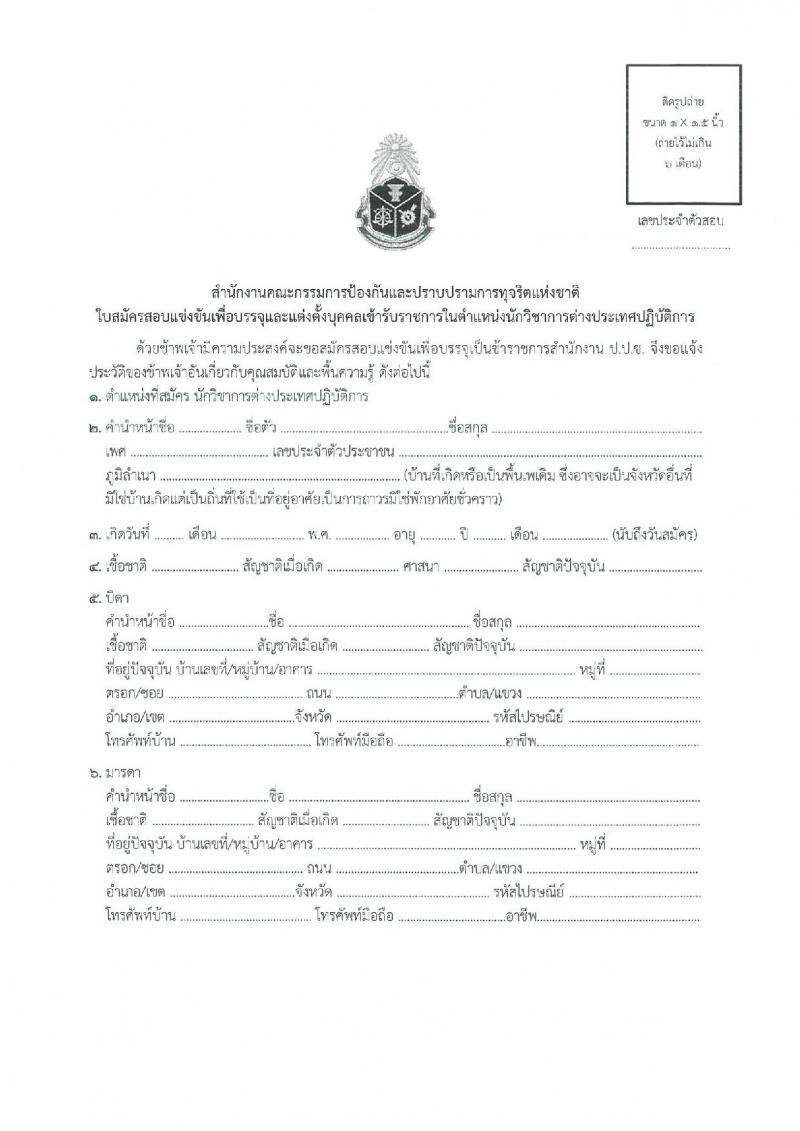 ติดรูปถ่าย
ขนาด ๑ X ๑.๕ นิ้ว
(ถ่ายไว้ไม่เกิน
๖ เดือน)
เลขประจำตัวสอบ
..............................
สำนักงานคณะกรรมการป้องกันและปราบปรามการทุจริตแห่งชาติ
ใบสมัครสอบแข่งขันเพื่อบรรจุและแต่งตั้งบุคคลเข้ารับราชการในตำแหน่งนักวิชาการต่างประเทศปฏิบัติการ
ด้วยข้าพเจ้ามีความประสงค์จะขอสมัครสอบแข่งขันเพื่อบรรจุเป็นข้าราชการสำนักงาน ป.ป.ช. จึงขอแจ้ง
ประวัติของข้าพเจ้าอันเกี่ยวกับคุณสมบัติและพื้นความรู้ ดังต่อไปนี้
๑. ตำแหน่งที่สมัคร นักวิชาการต่างประเทศปฏิบัติการ
๒. คำนำหน้าชื่อ .................... ชื่อตัว ....................ชื่อสกุล ....................
เพศ .................... เลขประจำตัวประชาชน ....................
ภูมิลำเนา .................... (บ้านที่เกิดหรือเป็นพื้นเพเดิม ซึ่งอาจจะเป็นจังหวัดอื่นที่
มิใช่บ้านเกิดแต่เป็นถิ่นที่ใช้เป็นที่อยู่อาศัยเป็นการถาวรมิใช่พักอาศัยชั่วคราว)
๓. เกิดวันที่ .......... เดือน .................... พ.ศ. .................... อายุ .......... ปี .......... เดือน .................... (นับถึงวันสมัคร)
๔. เชื้อชาติ .................... สัญชาติเมื่อเกิด .................... ศาสนา .................... สัญชาติปัจจุบัน ....................
๕. บิดา
คำนำหน้าชื่อ ....................ชื่อ .................... ชื่อสกุล ....................
เชื้อชาติ .................... สัญชาติเมื่อเกิด .................... สัญชาติปัจจุบัน ....................
ที่อยู่ปัจจุบัน บ้านเลขที่/หมู่บ้าน/อาคาร .................... หมู่ที่ ....................
ตรอก/ซอย .................... ถนน ....................ตำบล/แขวง ....................
อำเภอ/เขต ....................จังหวัด .................... รหัสไปรษณีย์ ....................
โทรศัพท์บ้าน .................... โทรศัพท์มือถือ ....................อาชีพ....................
๖. มารดา
คำนำหน้าชื่อ ....................ชื่อ .................... ชื่อสกุล ....................
เชื้อชาติ .................... สัญชาติเมื่อเกิด .................... สัญชาติปัจจุบัน ....................
ที่อยู่ปัจจุบัน บ้านเลขที่/หมู่บ้าน/อาคาร .................... หมู่ที่ ....................
ตรอก/ซอย .................... ถนน ....................ตำบล/แขวง ....................
อำเภอ/เขต ....................จังหวัด .................... รหัสไปรษณีย์ ....................
โทรศัพท์บ้าน .................... โทรศัพท์มือถือ ....................อาชีพ....................